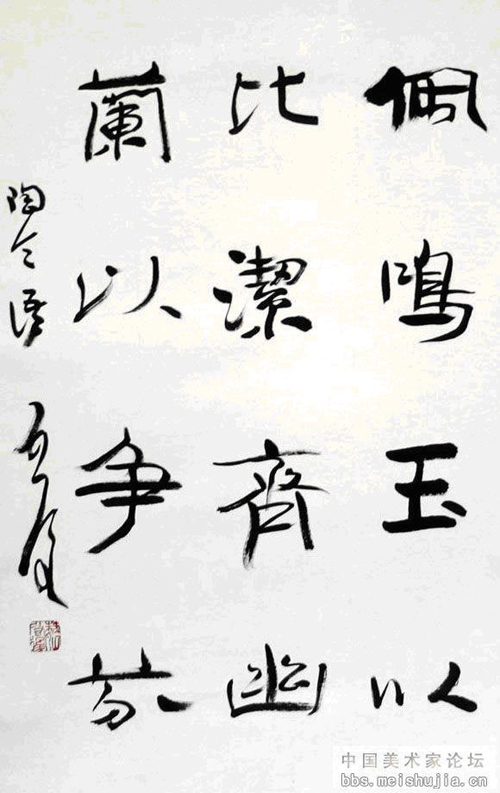 佩鳴玉以
比潔齊幽
蘭以争芬
陶令语
中国美术家论坛
bbs.meishujia.cn